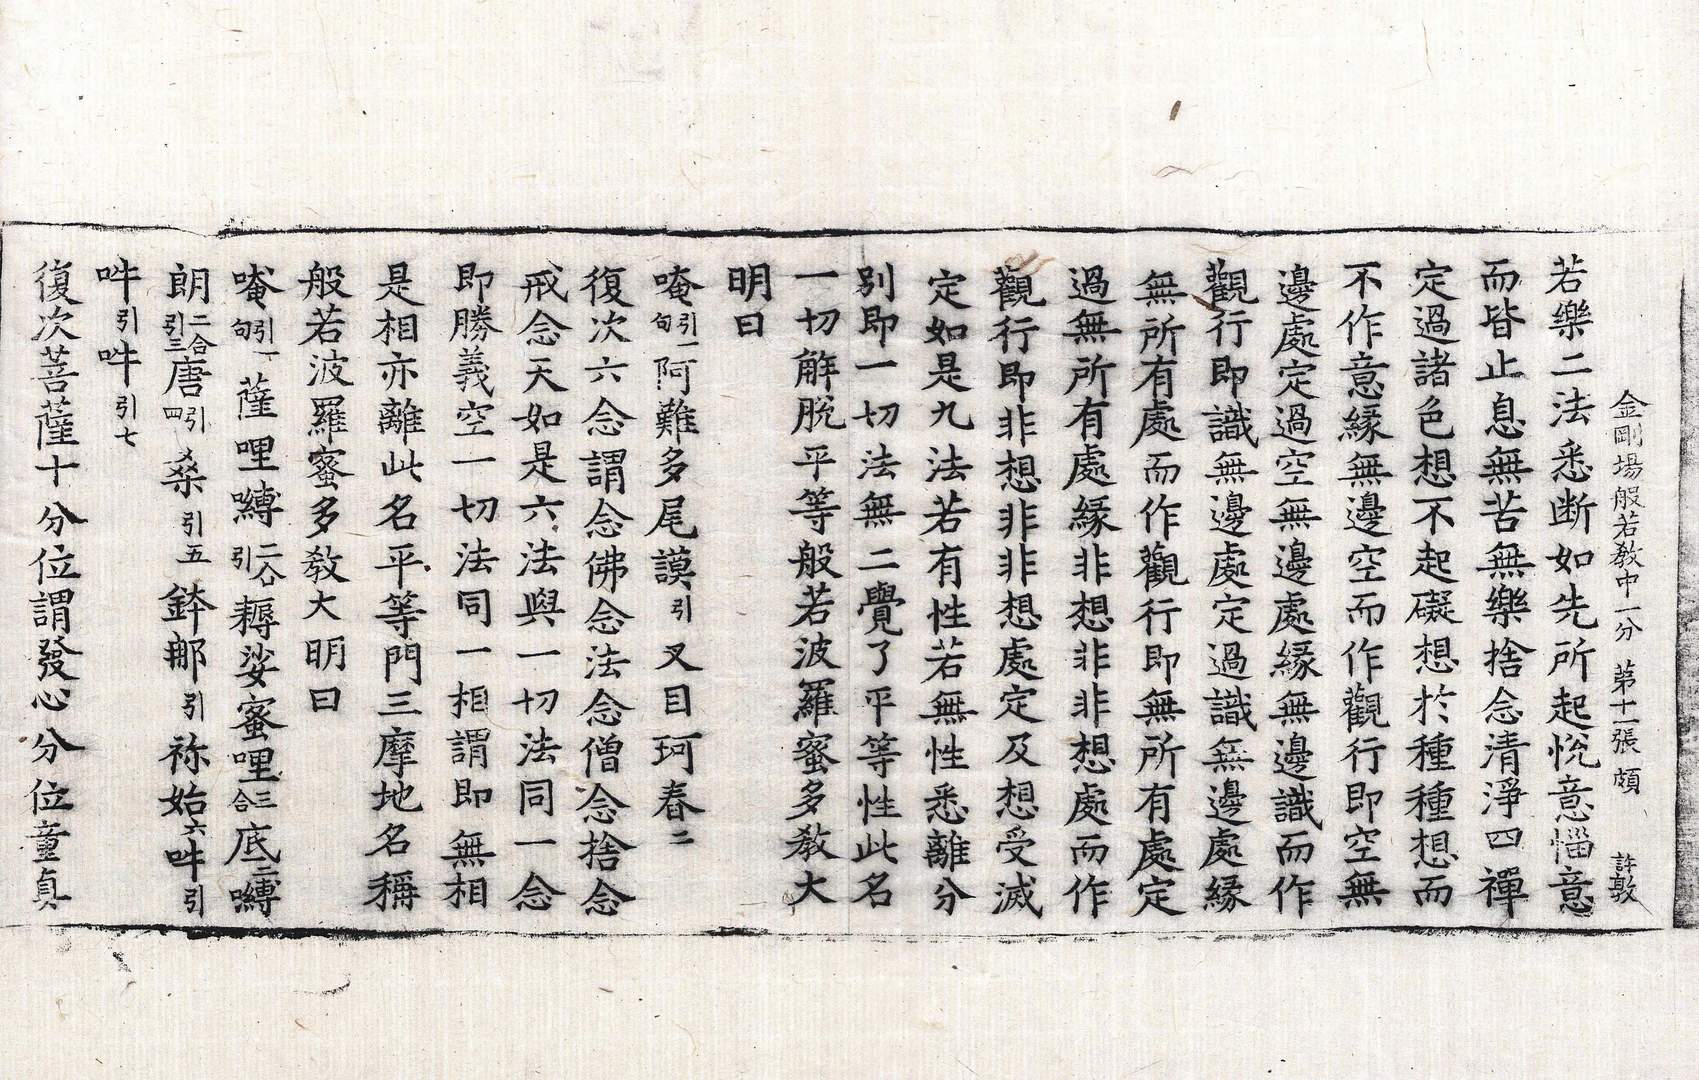 金剛場般若教中一分 第十一張 頗 許敦
若樂二法悉断如先所起悅意惱意
而皆止息無苦無樂捨念清淨四禪
定過諸色想不起礙想於種種想而
不作意緣無邊空而作觀行即空無
邊處定過空無邊處緣無邊識而作
觀行即識無邊處定過識無邊處緣
無所有處而作觀行即無所有處定
過無所有處緣非想非非想處而作
觀行即非想非非想處定及想受滅
定如是九法若有性若無性悉離分
別即一切法無二覺了平等性此名
一切解脫平等般若波羅蜜多教大
明曰
唵引一句阿難多尾謨引叉目珂舂二
復次六念謂念佛念法念僧念捨念
戒念天如是六法與一切法同一念
即勝義空一切法同一相謂即無相
是相亦離此名平等門三摩地名稱
般若波羅蜜多教大明曰
唵引一句薩哩嚩二合引耨娑蜜哩三合底二嚩
朗二合引三唐引四桑引五鉢那引祢始六吽引
吽引吽引七
復次菩薩十分位謂發心分位童真